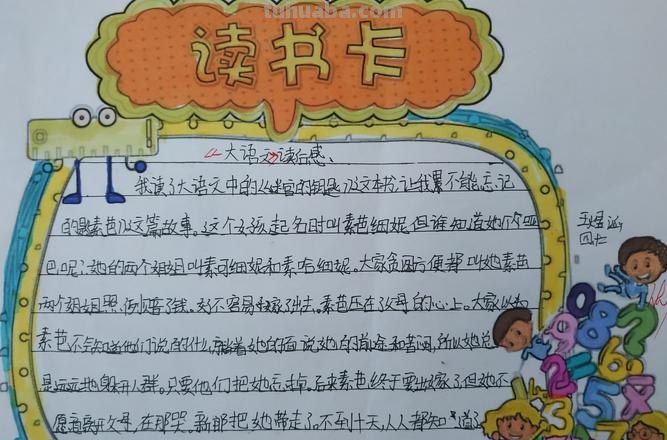 tuhuaba.com
读书卡
《大语文》读后感、
我读了大语文中的《迷宫的钥匙》这本书,让我累不能忘记
的是素芭》这篇故事。这个女孩起名时叫素芭细妮,但谁知道她个哑
巴呢?她的两个姐姐叫素可细妮和素哈细妮。大家贪图方便都叫她素芭
两个姐姐照例。好不容易嫁了出去。素芭压在父母的心上。大家以为
素芭不会知道他们说的什么,当着她的面说她的前途和苦闷,所以她总
是远远地躲开人群。只要他们把她忘掉。后来素芭终于要出嫁了但她不
愿意离开父母,在那哭。新郎把她带走了。不到十天,人人都知道
王煜涵
四七